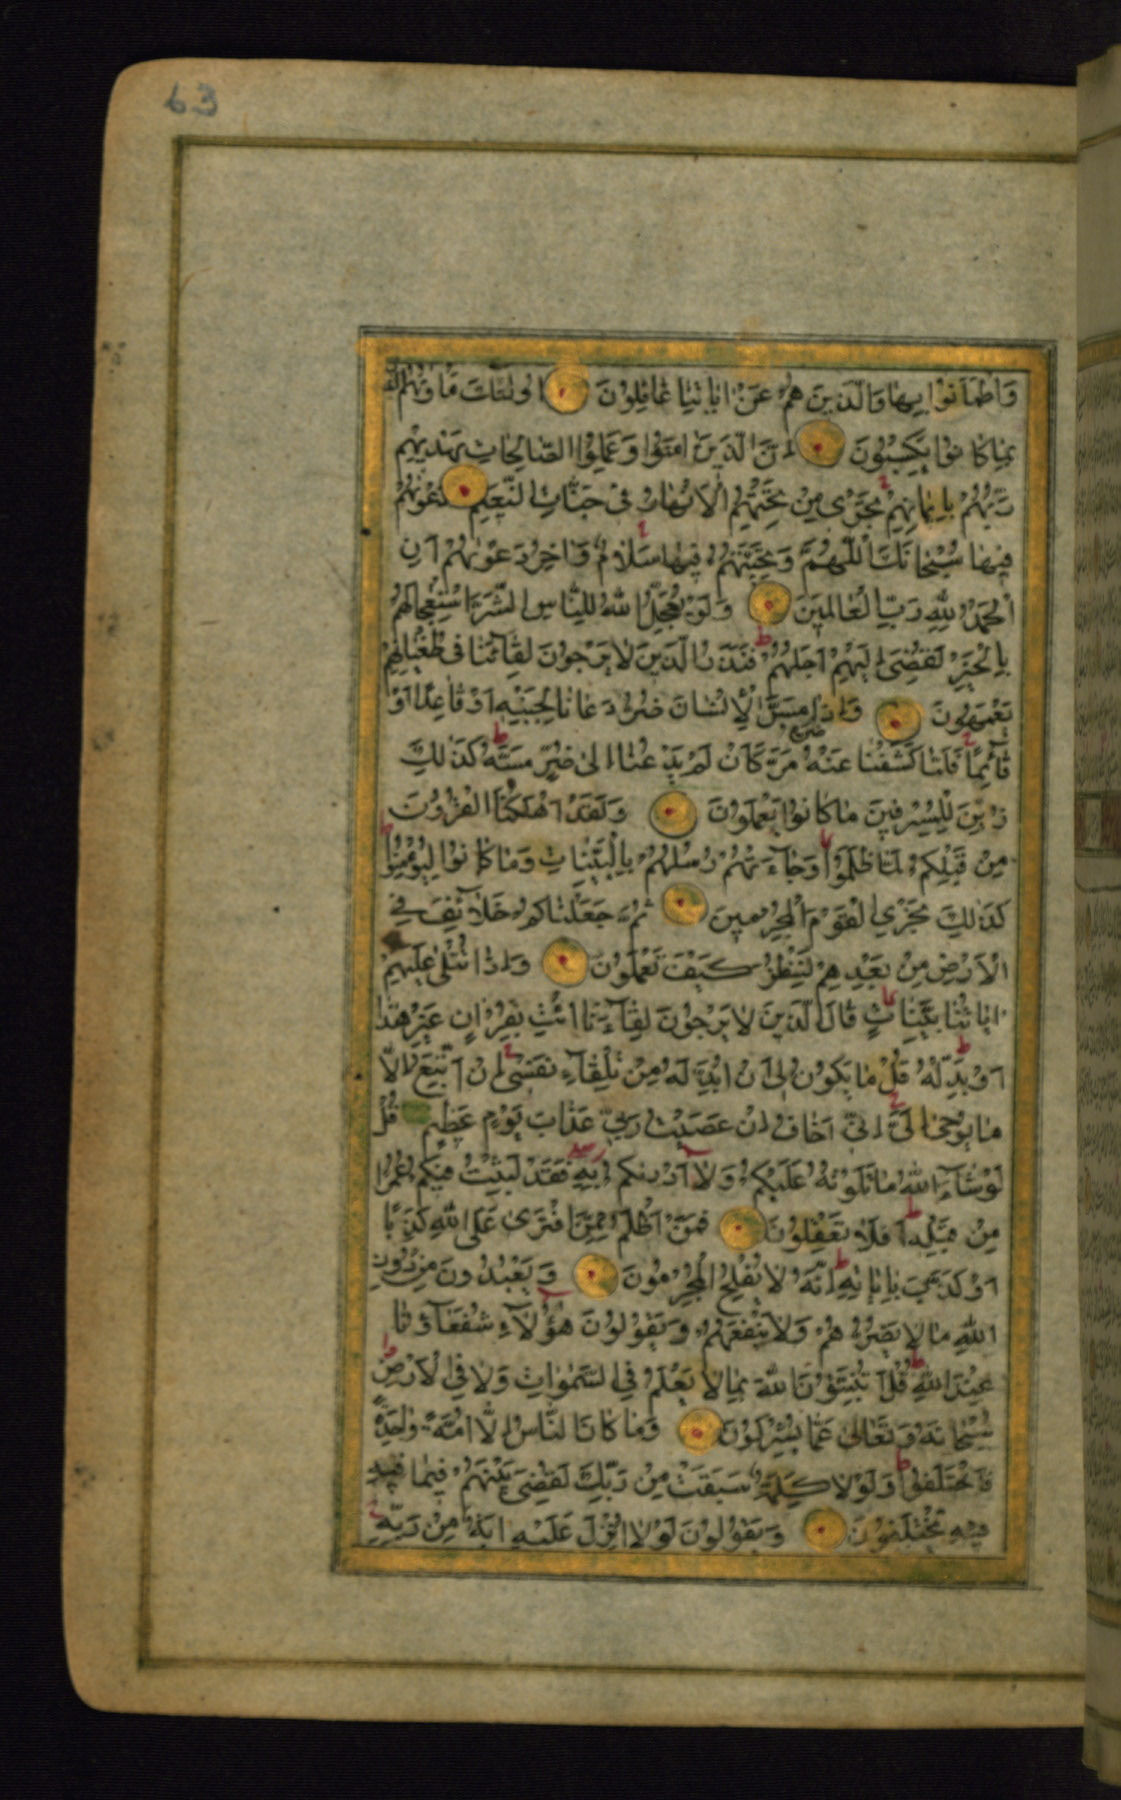 63
وَاطْمَاَنُّوا بِهَا وَالَّذِينَ هُمْ عَنْ اٰيَاتِنَا غَافِلُونَ اُولٰئِكَ مَاْوٰيهُمُ النَّا
بِمَا كَانُوا يَكْسِبُونَ اِنَّ الَّذِينَ اٰمَنُوا وَعَمِلُوا الصَّالِحَاتِ يَهْدِيهِمْ
رَبُّهُمْ بِاِيمَانِهِمْ تَجْرِي مِنْ تَحْتِهِمُ الْاَنْهَارُ فِي جَنَّاتِ النَّعِيمِ دَعْوٰيهُمْ
فِيهَا سُبْحَانَكَ اللّٰهُمَّ وَتَحِيَّتُهُمْ فِيهَا سَلَامٌ وَاٰخِرُ دَعْوٰيهُمْ اَنِ
الْحَمْدُ لِلّٰهِ رَبِّ الْعَالَمِينَ وَلَوْ يُعَجِّلُ اللّٰهُ لِلنَّاسِ الشَّرَّ اسْتِعْجَالَهُمْ
بِالْخَيْرِ لَقُضِيَ اِلَيْهِمْ اَجَلُهُمْ فَنَذَرُ الَّذِينَ لَا يَرْجُونَ لِقَاءَنَا فِي طُغْيَانِهِمْ
يَعْمَهُونَ وَاِذَا مَسَّ الْاِنْسَانَ ضُرٌّ دَعَانَا لِجَنْبِهِ اَوْ قَاعِدًا اَوْ
قَائِمًا فَلَمَّا كَشَفْنَا عَنْهُ مَرَّ كَاَنْ لَمْ يَدْعُنَا اِلٰى ضُرٍّ مَسَّهُ كَذٰلِكَ
زُيِّنَ لِلْمُسْرِفِينَ مَا كَانُوا يَعْمَلُونَ وَلَقَدْ اَهْلَكْنَا الْقُرُونَ
مِنْ قَبْلِكُمْ لَمَّا ظَلَمُوا وَجَاءَتْهُمْ رُسُلُهُمْ بِالْبَيِّنَاتِ وَمَا كَانُوا لِيُؤْمِنُوا
كَذٰلِكَ نَجْزِي الْقَوْمَ الْمُجْرِمِينَ ثُمَّ جَعَلْنَاكُمْ خَلَائِفَ فِي
الْاَرْضِ مِنْ بَعْدِهِمْ لِنَنْظُرَ كَيْفَ تَعْمَلُونَ وَاِذَا تُتْلٰى عَلَيْهِمْ
اٰيَاتُنَا بَيِّنَاتٍ قَالَ الَّذِينَ لَا يَرْجُونَ لِقَاءَنَا ائْتِ بِقُرْاٰنٍ غَيْرِ هٰذَا
اَوْ بَدِّلْهُ قُلْ مَا يَكُونُ لِي اَنْ اُبَدِّلَهُ مِنْ تِلْقَاءِ نَفْسِي اِنْ اَتَّبِعُ اِلَّا
مَا يُوحٰى اِلَيَّ اِنِّي اَخَافُ اِنْ عَصَيْتُ رَبِّي عَذَابَ يَوْمٍ عَظِيمٍ قُلْ
لَوْ شَاءَ اللّٰهُ مَا تَلَوْتُهُ عَلَيْكُمْ وَلَا اَدْرٰيكُمْ بِهِ فَقَدْ لَبِثْتُ فِيكُمْ عُمُرًا
مِنْ قَبْلِهِ اَفَلَا تَعْقِلُونَ فَمَنْ اَظْلَمُ مِمَّنِ افْتَرٰى عَلَى اللّٰهِ كَذِبًا
اَوْ كَذَّبَ بِاٰيَاتِهِ اِنَّهُ لَا يُفْلِحُ الْمُجْرِمُونَ وَيَعْبُدُونَ مِنْ دُونِ
اللّٰهِ مَا لَا يَضُرُّهُمْ وَلَا يَنْفَعُهُمْ وَيَقُولُونَ هٰؤُلَاءِ شُفَعَاؤُنَا
عِنْدَ اللّٰهِ قُلْ اَتُنَبِّئُونَ اللّٰهَ بِمَا لَا يَعْلَمُ فِي السَّمٰوَاتِ وَلَا فِي الْاَرْضِ
سُبْحَانَهُ وَتَعَالٰى عَمَّا يُشْرِكُونَ وَمَا كَانَ النَّاسُ اِلَّا اُمَّةً وَاحِدَةً
فَاخْتَلَفُوا وَلَوْلَا كَلِمَةٌ سَبَقَتْ مِنْ رَبِّكَ لَقُضِيَ بَيْنَهُمْ فِيمَا فِيهِ
فِيهِ يَخْتَلِفُونَ وَيَقُولُونَ لَوْلَا اُنْزِلَ عَلَيْهِ اٰيَةٌ مِنْ رَبِّهِ